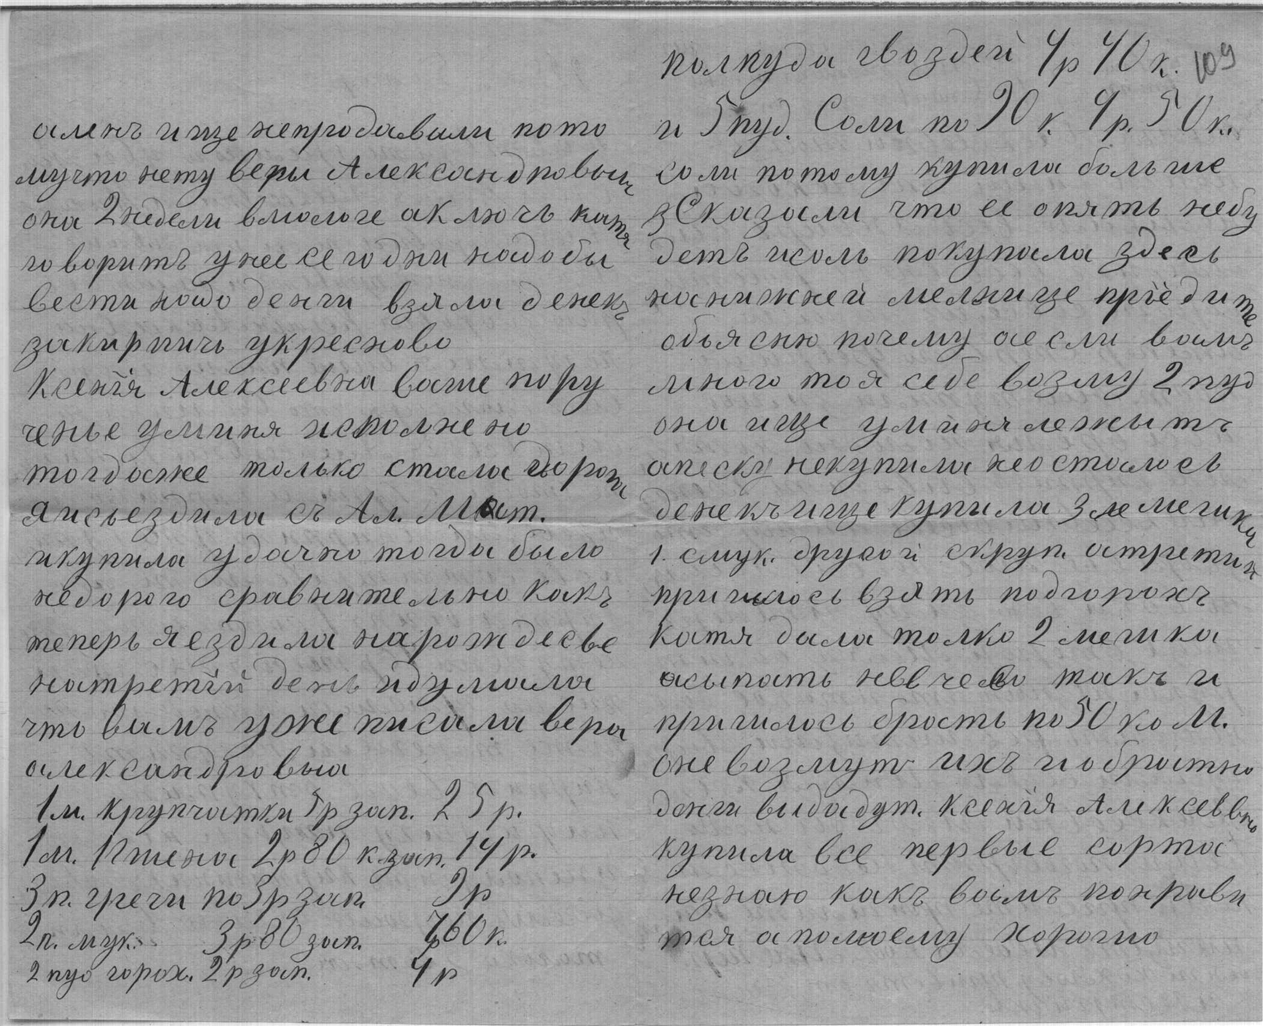 аленъ ище непродавали пото
мучто нету веры Александровны
она 2 недели вмологе аключъ катя
говоритъ унее сегодни надобы
вести надо денги взяла денекъ
закирпичъ укресново
Ксенія Алексеевна ваше пору
ченье уминя исполнено
тогдаже только стала дорога
яисъездила съ Ал. Мат.
икупила удачно тогда было
недорого сравнительно какъ
теперь яездила нарождесве
натретій день идумала
что вамъ уже писала вера
александровна
1 м. крупчатки 5 р зап. 25 р.
1 м. Пшена 2 р 80 к зап. 14 р.
3 п. гречи по 3 р зап. 9 р
2 п. мук. 3 р 80 зап. 7 р 60 к.
2 пуд горох. 2 р зап. 4 р
109
полпуда гвоздей 4 р 40 к.
и 5 пуд. Соли по 90 к. 4 р. 50 к.
соли потому купила больше
Сказали что ее опять небу
детъ исоль покупала здесь
нанижней мелнице пріедите
обьясню почему аесли вамъ
много тоя себе возму 2 пуд
она ище уминя лежытъ
апеску некупила неосталось
денекъ ище купила 3 лемешка
1. смук. другой скруп. атретий
пришлось взять подгорохъ
катя дала толко 2 мешка
асыпать невчево такъ и
пришлось брать по 50 ко М.
оне возмут ихъ иобратно
денги выдадут. Ксенія Алексевна
купила все первые сорта
незнаю какъ вамъ понрави
тся апомоему хорошо